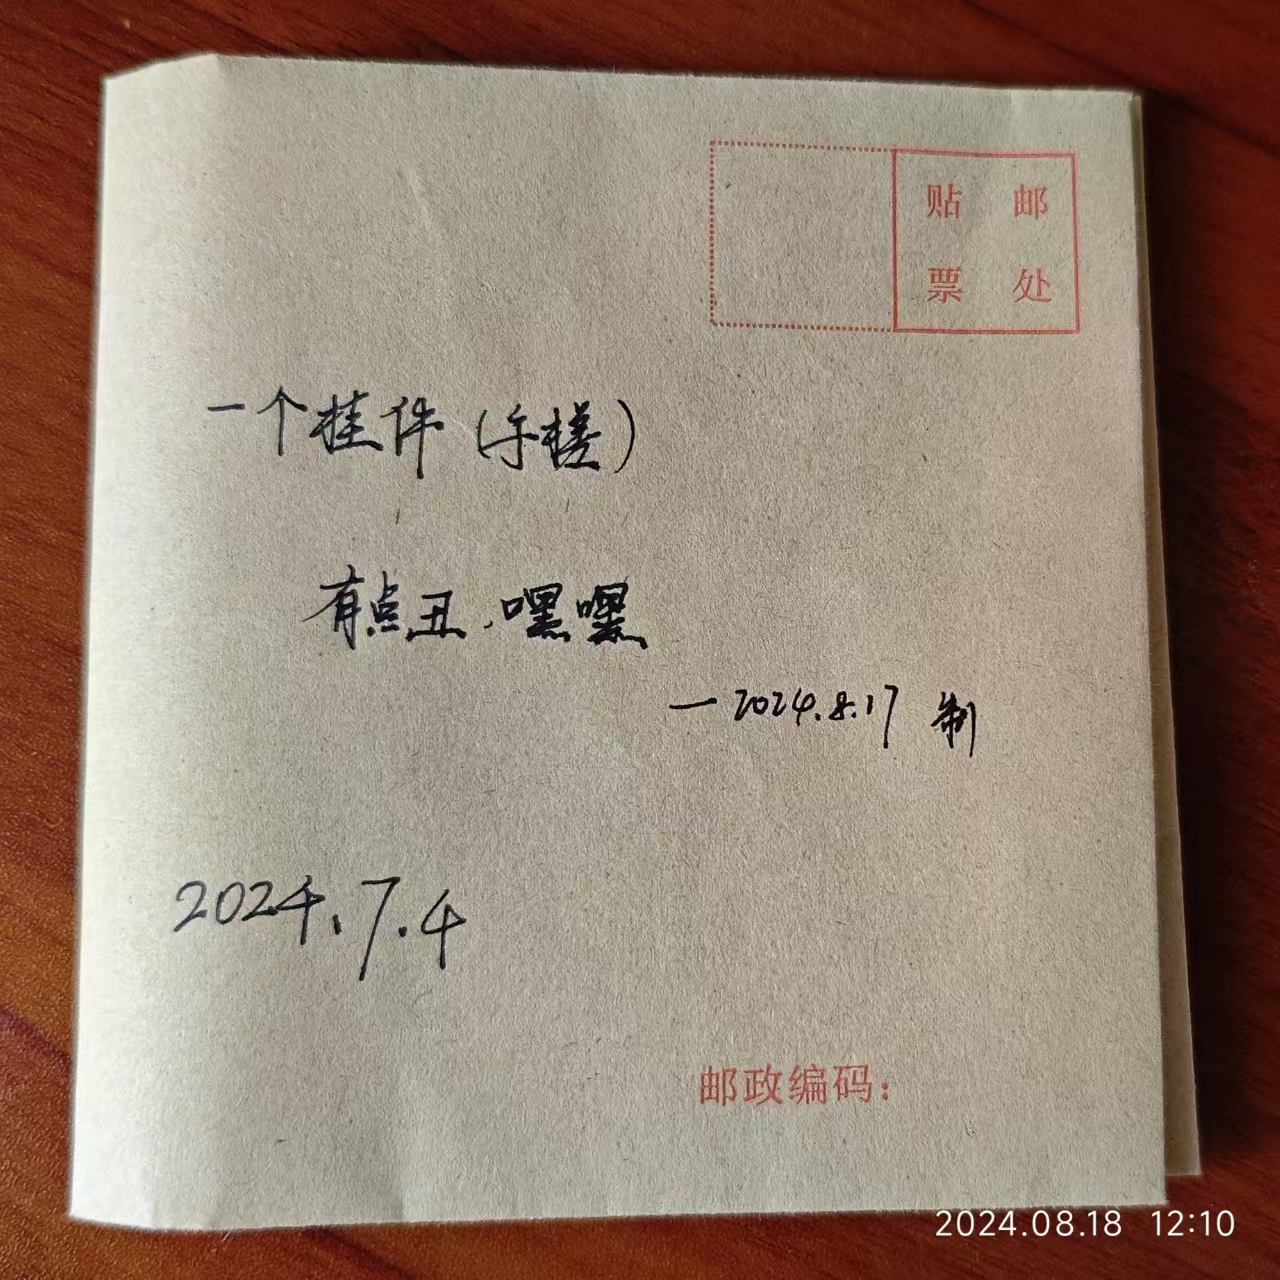 贴 邮
票 处
一个挂件（手搓）
有点丑，嘿嘿
—2024.8.17 制
2024.7.4
邮政编码：
2024.08.18 12:10